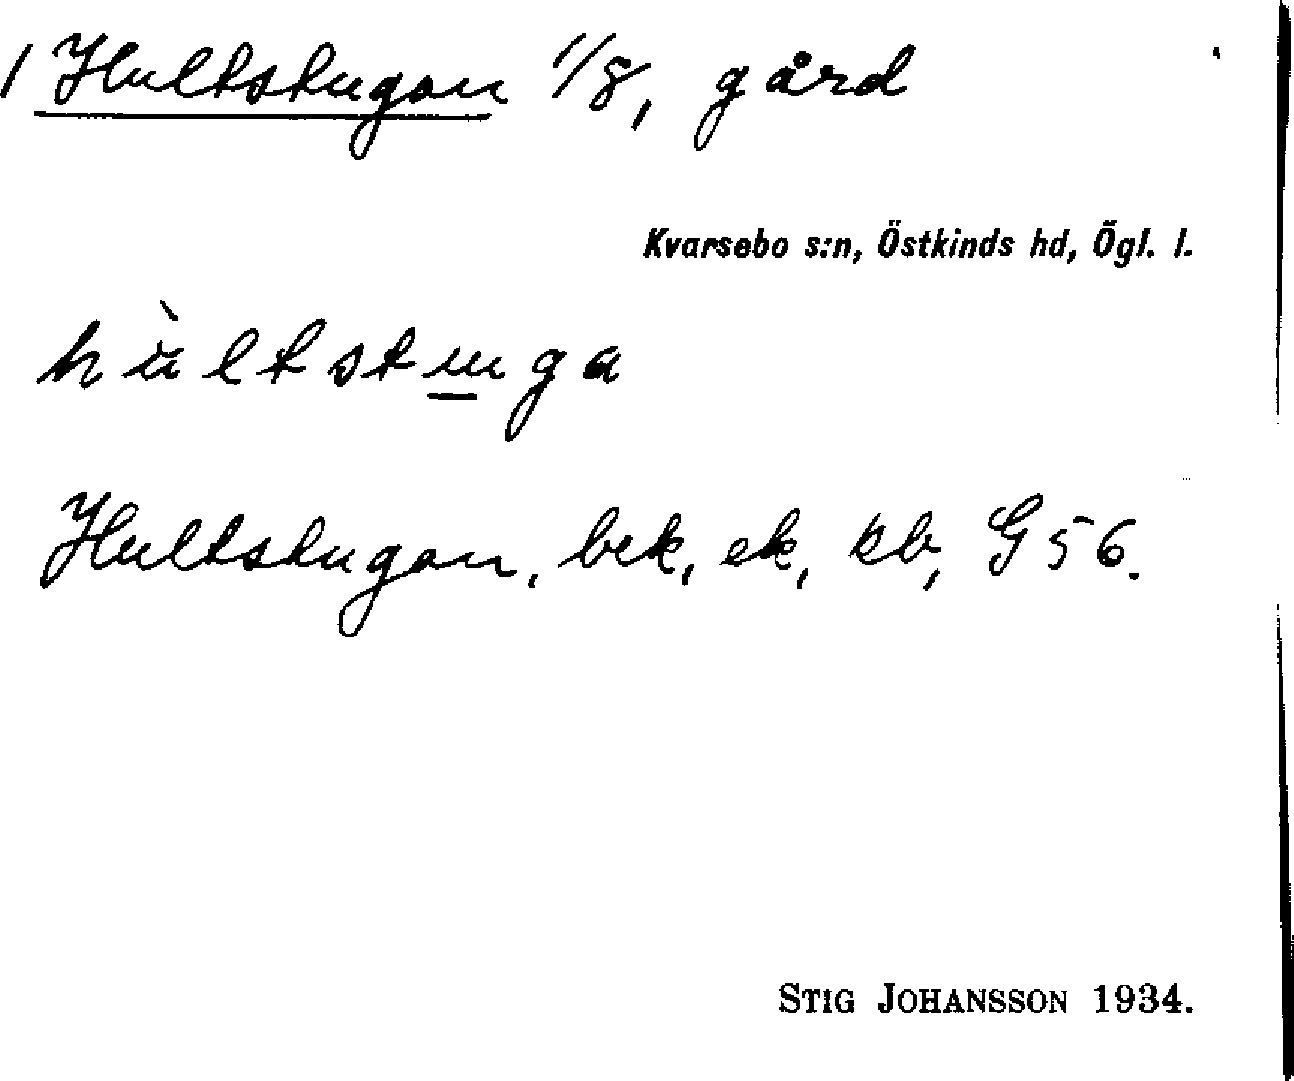 1 Hultstugan 1/8, gård
Kvarsebo s:n, Östkinds hd, Ögl. l.
hùltstuga
Hultstugan, bek, ek, kb, G 56.
STIG JOHANSSON 1934.